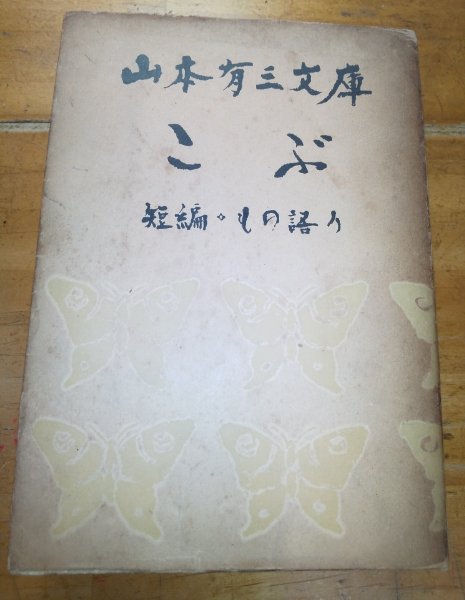 山本有三文庫
こぶ
短編・もの語り